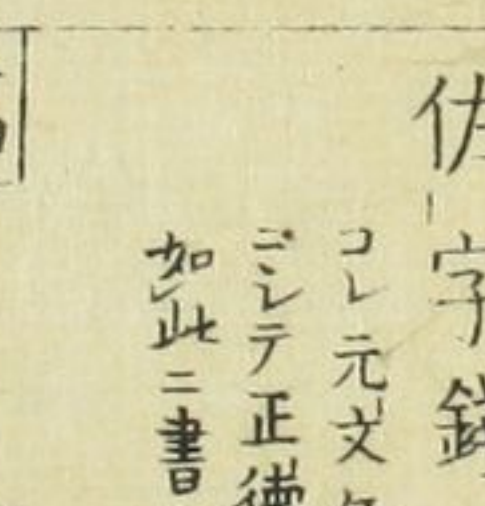 佐字銭
コレ元文
ニシテ正徳
如此ニ書